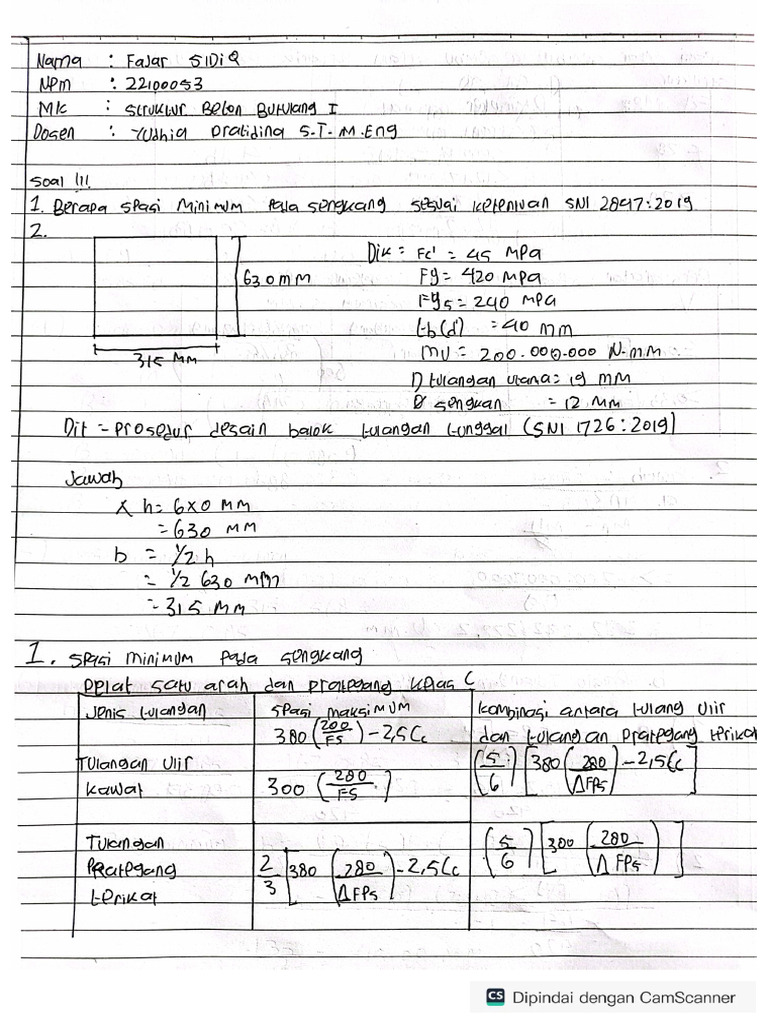 Nama : Fajar SIDiQ
NPm : 22100053
MK : Struktur Beton Butulang I
Dosen : Yudhia pratidina S.T. M.Eng
soal !!!
1. Berapa spasi minimum pada sengkang sesuai ketentuan SNI 2847:2019
2.
630 mm
315 mm
Dik = Fc' = 45 MPa
Fy = 420 MPa
Fys = 240 MPa
t-b(d') = 40 mm
MU = 200.000.000 N.mm
D tulangan utama = 19 mm
Ø sengkan = 12 mm
Dit = Prosedur desain balok tulangan tunggal (SNI 1726:2019)
Jawab
x h = 6x0 mm
= 630 mm
b = 1/2 h
= 1/2 630 mm
= 315 mm
1. spasi minimum pada sengkang
Pplat satu arah dan pratgang kelas C
Jenis tulangan
spasi maksimum
380 (200/FS) - 2,5 Cc
kombinasi antara tulang ulir
dan tulangan pratgang terikat
Tulangan Ulir
kawat
300 (280/FS)
(5/6) [380 (280/ΔFPs) - 2,5 Cc]
Tulangan
Pratgang
terikat
2/3 [380 (280/ΔFPs) - 2,5 Cc
(5/6) [300 (280/ΔFPs)]
CS Dipindai dengan CamScanner